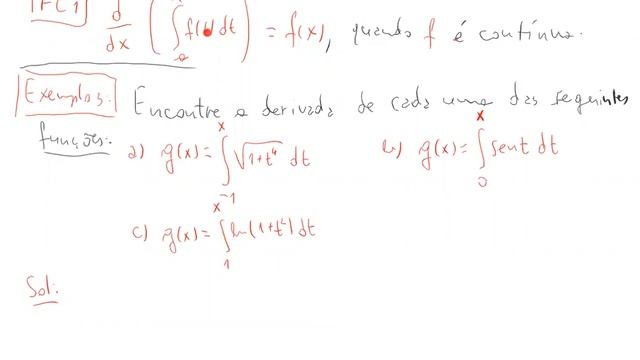 TFC1 d/dx ( ∫ₐˣ f(t) dt ) = f(x), quando f é contínua.
Exemplos: Encontre a derivada de cada uma das seguintes
funções:
a) g(x) = ∫₋₁ˣ √(1+t⁴) dt b) g(x) = ∫₀ˣ sent dt
c) g(x) = ∫₁ˣ ln(1+t²) dt
Sol: